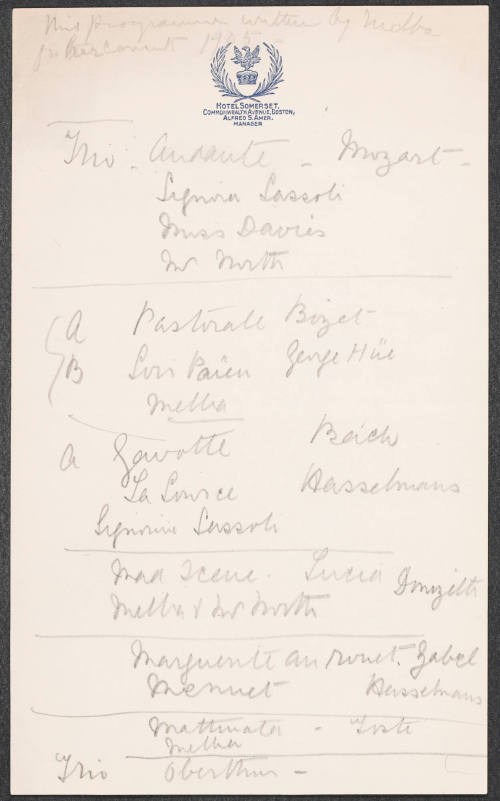 This programme written by Melba
for her concert 1905 -
HOTEL SOMERSET,
COMMONWEALTH AVENUE, BOSTON,
ALFRED S. AMER.
MANAGER
Trio - Andante - Mozart -
Signora Sassoli
Miss Davies
Mr North
A Pastorale Bizet
B Soir Païen George Hüe
Melba
A Gavotte Bach
La Source Hasselmans
Signorina Sassoli
Mad Scene. Lucia Donizetti
Melba & Mr North
Marguerite au rouet. Zabel
Menuet Hasselmans
Mattinata - Tosti
Melba
Trio Oberthur -